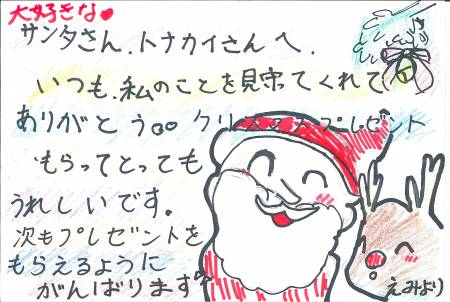 大好きな♥
サンタさん.トナカイさんへ.
いつも.私のことを見守てくれて
ありがとう。。クリスマスプレゼント
もらってとっても
うれしいです。
次もプレゼントを
もらえるように
がんばります
えみより